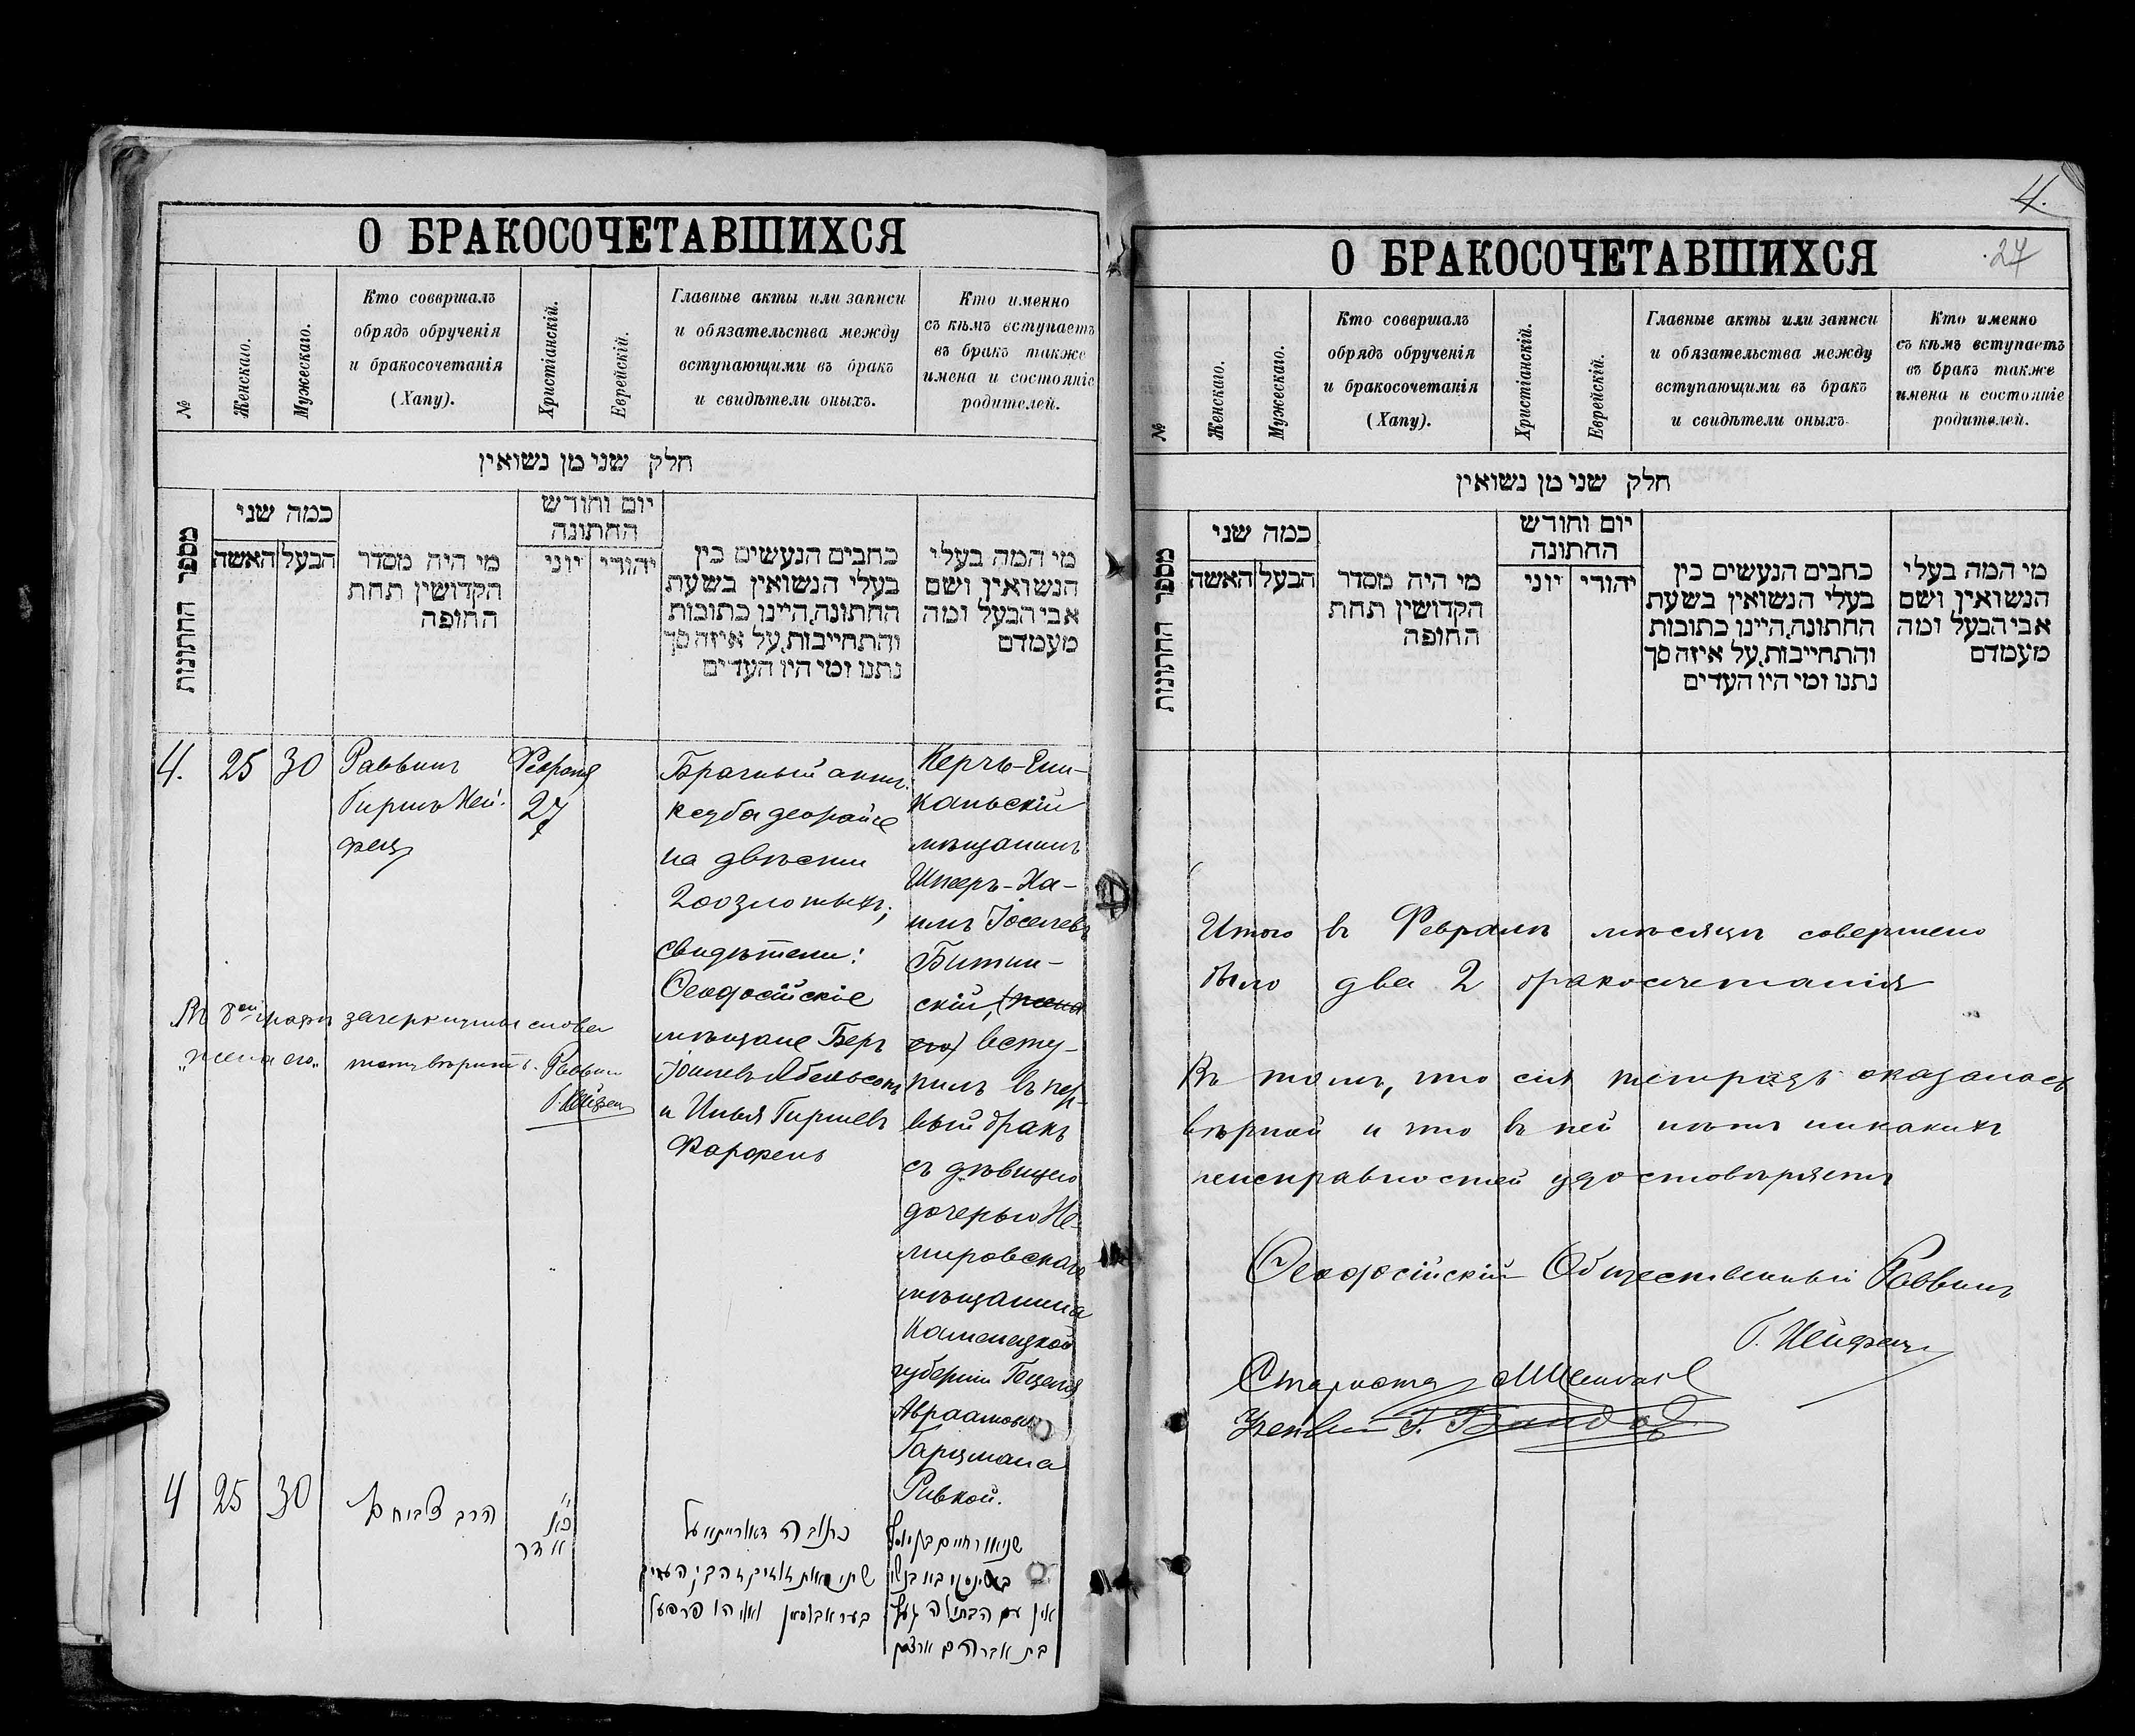 О БРАКОСОЧЕТАВШИХСЯ
№
Женскаго.
Мужескаго.
Кто совершалъ
обрядъ обрученія
и бракосочетанія
(Хапу).
Христіанскій.
Еврейскій.
Главные акты или записи
и обязательства между
вступающими въ бракъ
и свидѣтели оныхъ.
Кто именно
съ кѣмъ вступаетъ
въ бракъ также
имена и состояніе
родителей.
חלק שני מן נשואין
מספר החתונות
כמה שני
האשה
הבעל
מי היה מסדר
הקדושין תחת
החופה
יום וחודש
החתונה
יוני
יהודי
כתבים הנעשים בין
בעלי הנשואין בשעת
החתונה, היינו כתובות
והתחייבות, על איזה סך
נתנו ומי היו העדים
מי המה בעלי
הנשואין, ושם
אבי הבעל ומה
מעמדם
4.
25
30
Раввинъ
Гиршъ Ней-
фецъ
Февраля
27
Брачный актъ
ксуба деорайсе
на двѣсти
200 злотыхъ;
свидѣтели:
Ѳеодосійскіе
мѣщане Беръ
Іошевъ Абельсонъ
и Илья Гиршевъ
Фарфель
Керчь-Ени-
кальскій
мѣщанинъ
Шнееръ-Ха-
имъ Іоселевъ
Битин-
скій, (жена
его) всту-
пилъ въ пер-
вый бракъ
съ дѣвицею
дочерью Не-
мировскаго
мѣщанина
Каменецкой
губерніи Гецеля
Авраамова
Гарцмана
Ривкой.
Въ 8ой графѣ зачеркнутыя слова
„жена его„ тому вѣрить. Раввинъ
Г. Нейфецъ
4
25
30
הרב
כ״א
אדר
כתובה דאורייתא על
בער אבלסאן ואליהו פרפעל
О БРАКОСОЧЕТАВШИХСЯ
4.
27
№
Женскаго.
Мужескаго.
Кто совершалъ
обрядъ обрученія
и бракосочетанія
(Хапу).
Христіанскій.
Еврейскій.
Главные акты или записи
и обязательства между
вступающими въ бракъ
и свидѣтели оныхъ.
Кто именно
съ кѣмъ вступаетъ
въ бракъ также
имена и состояніе
родителей.
חלק שני מן נשואין
מספר החתונות
כמה שני
האשה
הבעל
מי היה מסדר
הקדושין תחת
החופה
יום וחודש
החתונה
יוני
יהודי
כתבים הנעשים בין
בעלי הנשואין בשעת
החתונה, היינו כתובות
והתחייבות, על איזה סך
נתנו ומי היו העדים
מי המה בעלי
הנשואין, ושם
אבי הבעל ומה
מעמדם
Итого въ Февралѣ мѣсяцѣ совершено
было два 2 бракосочетанія
Въ томъ, что сія тетрадь оказалась
вѣрной и что въ ней нѣтъ никакихъ
неисправностей удостовѣряетъ
Ѳеодосійскій Общественный Раввинъ
Г. Нейфецъ
Староста